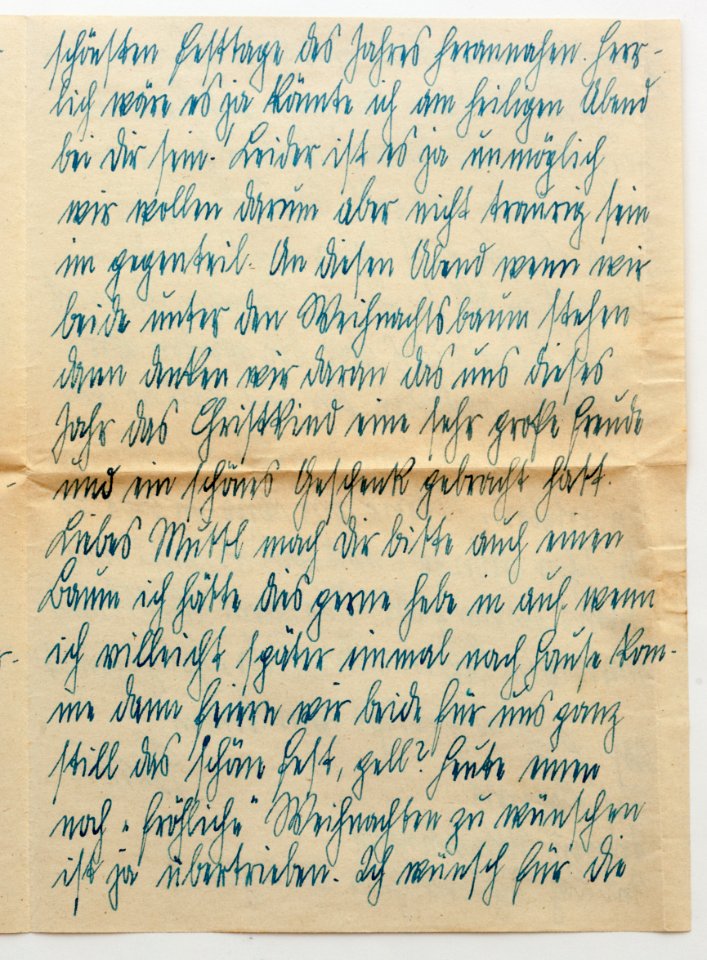 schönsten Festtage des Jahres herannahen. Herr-
lich wäre es ja könnte ich am heiligen Abend
bei dir sein. Leider ist es ja unmöglich
wir wollen darum aber nicht traurig sein
im gegenteil. An diesen Abend wenn wir
beide unter den Weihnachtsbaum stehen
dann denken wir daran das uns dieses
Jahr das Christkind eine sehr große Freude
und ein schönes Geschenk gebracht hatt.
Liebes Muttl mach dir bitte auch einen
Baum ich hätte dies gerne hebe in auf. wenn
ich villeicht später einmal nach Hause kom-
me dann feiern wir beide für uns ganz
still das schöne Fest, gell? Heute einen
noch "fröhliche" Weihnachten zu wünschen
ist ja übertrieben. Ich wünsch für die